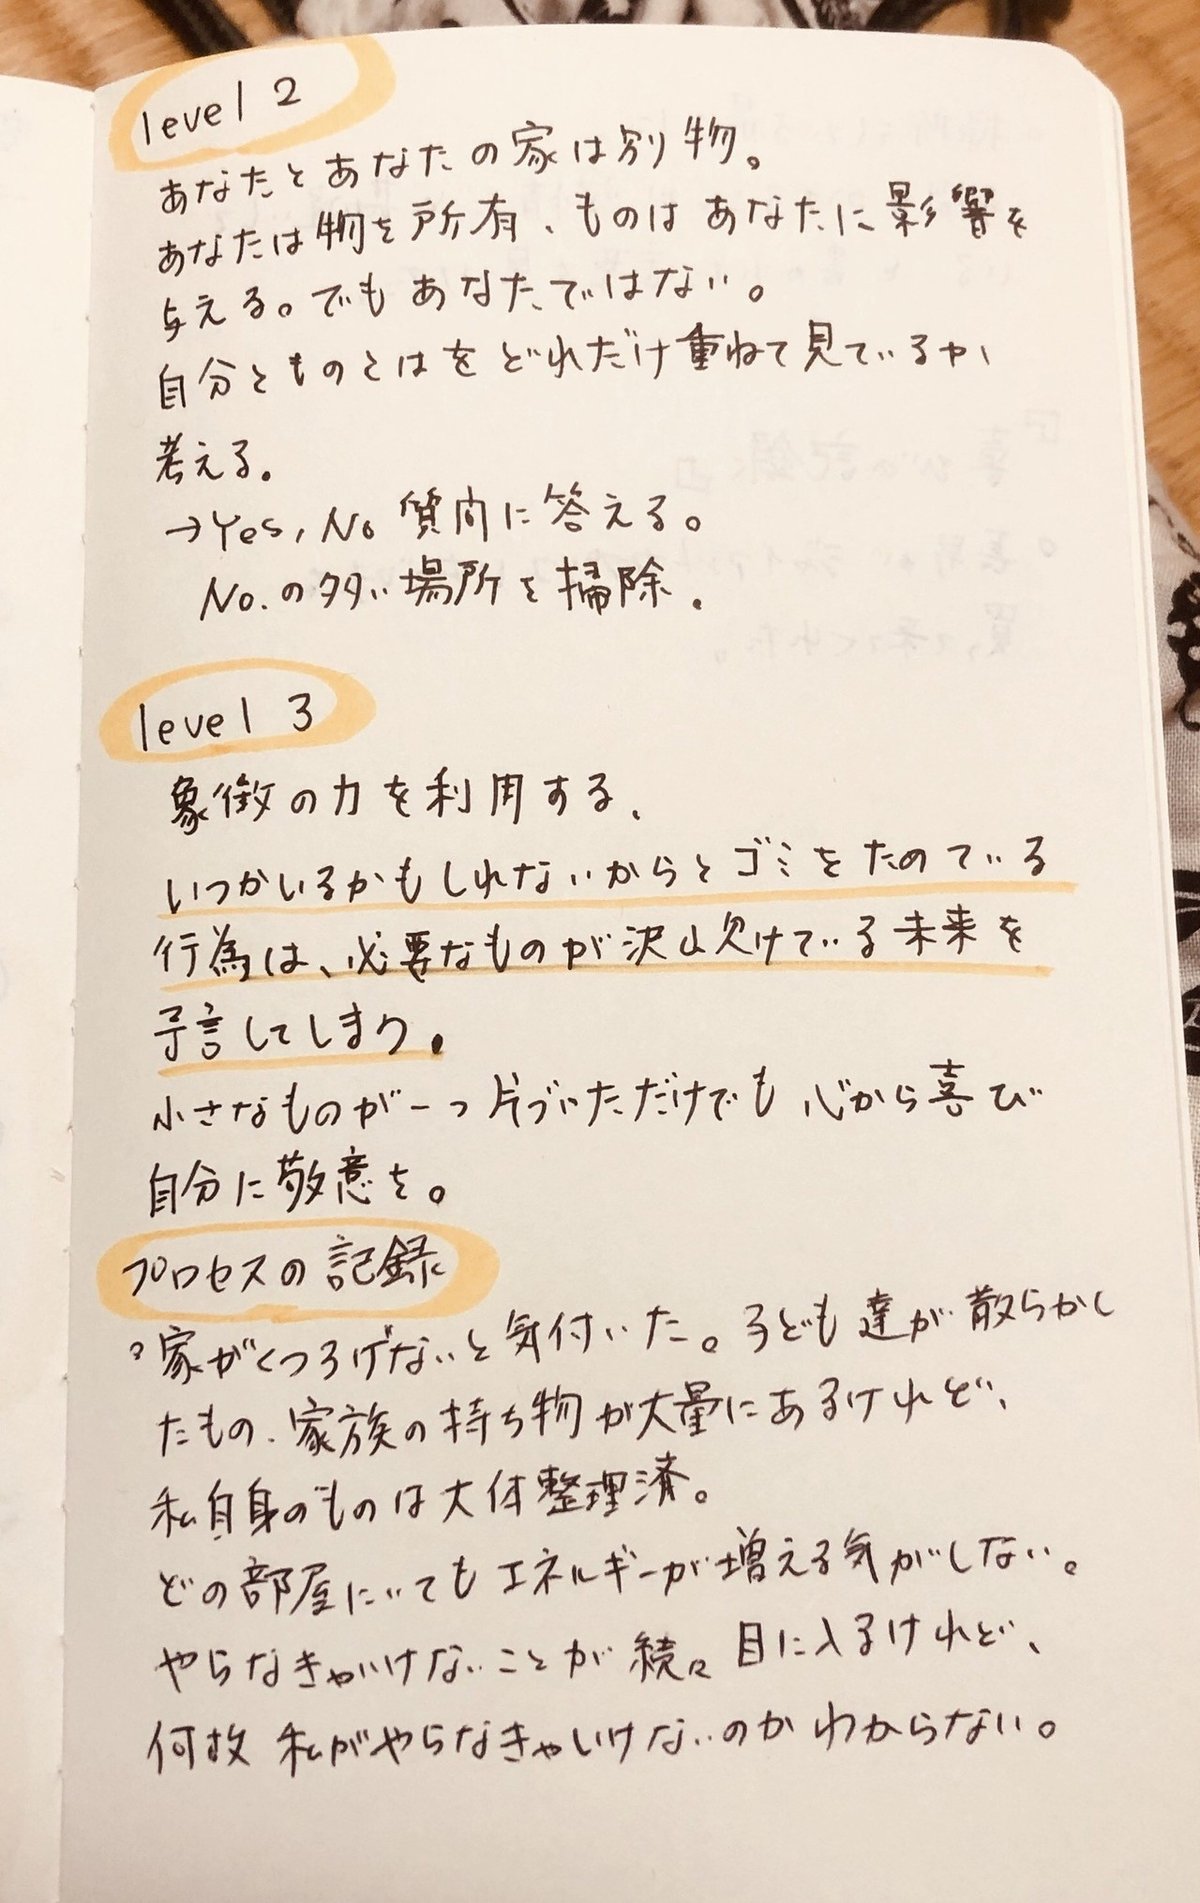 level 2
あなたとあなたの家は別物。
あなたは物を所有、ものはあなたに影響を
与える。でもあなたではない。
自分とものとはをどれだけ重ねて見ているか、
考える。
→Yes, No 質問に答える。
No.の多い場所を掃除.
level 3
象徴の力を利用する、
いつかいるかもしれないからとゴミをためている
行為は、必要なものが沢山欠けている未来を
予言してしまう。
小さなものが一つ片づいただけでも心から喜び
自分に敬意を。
プロセスの記録
家がくつろげないと気付いた。子ども達が散らかし
たもの、家族の持ち物が大量にあるけれど、
私自身のものは大体整理済。
どの部屋にいてもエネルギーが増える気がしない。
やらなきゃいけないことが続々目に入るけれど、
何故私がやらなきゃいけないのかわからない。